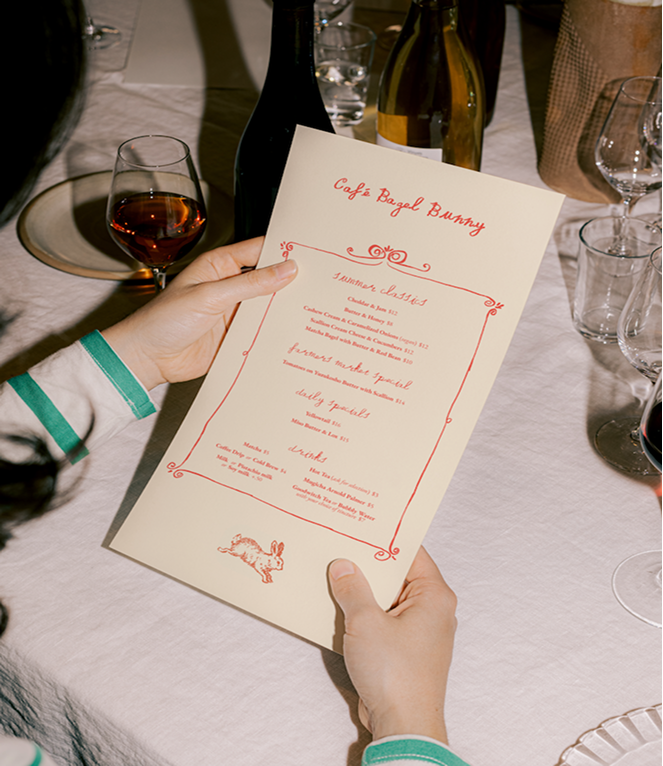 Café Bagel Bunny
summer classics
Cheddar & Jam $12
Butter & Honey $8
Cashew Cream & Caramelized Onions (vegan) $12
Scallion Cream Cheese & Cucumbers $12
Matcha Bagel with Butter & Red Bean $10
farmers market special
Tomatoes on Yuzukosho Butter with Scallion $14
daily specials
Yellowtail $16
Miso Butter & Lox $15
drinks
Matcha $5
Coffee Drip or Cold Brew $4
Milk or Pistachio milk
or Soy milk +.50
Hot Tea (ask for choices) $3
Mugicha Arnold Palmer $5
Goodwitch Tea or Bubbly Water
with your choice of tincture $7